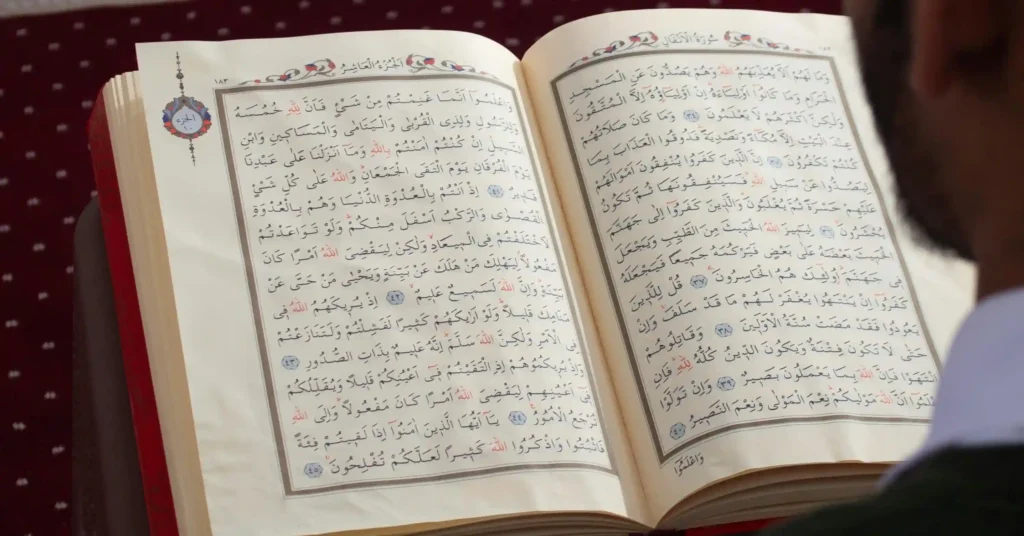 سُورَةُ الْاَنْفَالِ
وَمَا لَهُمْ اَلَّا يُعَذِّبَهُمُ اللّٰهُ وَهُمْ يَصُدُّونَ عَنِ الْمَسْجِدِ
الْحَرَامِ وَمَا كَانُٓوا اَوْلِيَٓاءَهُ اِنْ اَوْلِيَٓاؤُهُٓ اِلَّا الْمُتَّقُونَ
وَلٰكِنَّ اَكْثَرَهُمْ لَا يَعْلَمُونَ ٣٤ وَمَا كَانَ صَلَاتُهُمْ
عِنْدَ الْبَيْتِ اِلَّا مُكَٓاءً وَتَصْدِيَةً فَذُوقُوا الْعَذَابَ بِمَا
كُنْتُمْ تَكْفُرُونَ ٣٥ اِنَّ الَّذِينَ كَفَرُوا يُنْفِقُونَ اَمْوَالَهُمْ
لِيَصُدُّوا عَنْ سَبِيلِ اللّٰهِ فَسَيُنْفِقُونَهَا ثُمَّ تَكُونُ
عَلَيْهِمْ حَسْرَةً ثُمَّ يُغْلَبُونَ وَالَّذِينَ كَفَرُٓوا اِلٰى جَهَنَّمَ
يُحْشَرُونَ ٣٦ لِيَمِيزَ اللّٰهُ الْخَبِيثَ مِنَ الطَّيِّبِ وَيَجْعَلَ
الْخَبِيثَ بَعْضَهُ عَلٰى بَعْضٍ فَيَرْكُمَهُ جَمِيعًا فَيَجْعَلَهُ
فِي جَهَنَّمَ اُو۬لٰٓئِكَ هُمُ الْخَاسِرُونَ ٣٧ قُلْ لِلَّذِينَ
كَفَرُٓوا اِنْ يَنْتَهُوا يُغْفَرْ لَهُمْ مَا قَدْ سَلَفَ وَاِنْ
يَعُودُوا فَقَدْ مَضَتْ سُنَّةُ الْاَوَّلِينَ ٣٨ وَقَاتِلُوهُمْ
حَتّٰى لَا تَكُونَ فِتْنَةٌ وَيَكُونَ الدِّينُ كُلُّهُ لِلّٰهِ فَاِنِ
انْتَهَوْا فَاِنَّ اللّٰهَ بِمَا يَعْمَلُونَ بَصِيرٌ ٣٩ وَاِنْ تَوَلَّوْا
فَاعْلَمُٓوا اَنَّ اللّٰهَ مَوْلٰيكُمْ نِعْمَ الْمَوْلٰى وَنِعْمَ النَّصِيرُ ٤٠
وَاعْلَمُٓوا
اَلْجُزْءُ الْعَاشِرُ
١٨٣
الجزء ١٠
وَاعْلَمُٓوا اَنَّمَا غَنِمْتُمْ مِنْ شَيْءٍ فَاَنَّ لِلّٰهِ خُمُسَهُ
وَلِلرَّسُولِ وَلِذِي الْقُرْبٰى وَالْيَتَامٰى وَالْمَسَاكِينِ وَابْنِ
السَّبِيلِ اِنْ كُنْتُمْ اٰمَنْتُمْ بِاللّٰهِ وَمَٓا اَنْزَلْنَا عَلٰى عَبْدِنَا
يَوْمَ الْفُرْقَانِ يَوْمَ الْتَقَى الْجَمْعَانِ وَاللّٰهُ عَلٰى كُلِّ شَيْءٍ
قَدِيرٌ ٤١ اِذْ اَنْتُمْ بِالْعُدْوَةِ الدُّنْيَا وَهُمْ بِالْعُدْوَةِ
الْقُصْوٰى وَالرَّكْبُ اَسْفَلَ مِنْكُمْ وَلَوْ تَوَاعَدْتُمْ
لَاخْتَلَفْتُمْ فِي الْمِيعَادِ وَلٰكِنْ لِيَقْضِيَ اللّٰهُ اَمْرًا كَانَ
مَفْعُولًا لِيَهْلِكَ مَنْ هَلَكَ عَنْ بَيِّنَةٍ وَيَحْيٰى مَنْ حَيَّ عَنْ
بَيِّنَةٍ وَاِنَّ اللّٰهَ لَسَمِيعٌ عَلِيمٌ ٤٢ اِذْ يُرِيكَهُمُ اللّٰهُ فِي
مَنَامِكَ قَلِيلًا وَلَوْ اَرٰيكَهُمْ كَثِيرًا لَفَشِلْتُمْ وَلَتَنَازَعْتُمْ
فِي الْاَمْرِ وَلٰكِنَّ اللّٰهَ سَلَّمَ اِنَّهُ عَلِيمٌ بِذَاتِ الصُّدُورِ ٤٣
وَاِذْ يُرِيكُمُوهُمْ اِذِ الْتَقَيْتُمْ فِٓي اَعْيُنِكُمْ قَلِيلًا وَيُقَلِّلُكُمْ
فِٓي اَعْيُنِهِمْ لِيَقْضِيَ اللّٰهُ اَمْرًا كَانَ مَفْعُولًا وَاِلَى اللّٰهِ
تُرْجَعُ الْاُمُورُ ٤٤ يَٓا اَيُّهَا الَّذِينَ اٰمَنُٓوا اِذَا لَقِيتُمْ فِئَةً
فَاثْبُتُوا وَاذْكُرُوا اللّٰهَ كَثِيرًا لَعَلَّكُمْ تُفْلِحُونَ ٤٥